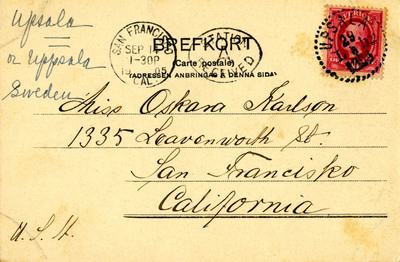 Upsala
or Uppsala
Sweden
SAN FRANCISCO
SEP 1
1-30P
05
CAL.
BREFKORT
(Carte postale)
(ADRESSEN ANBRINGAS Å DENNA SIDA)
RECEIVED
SVERIGE
UPSALA
Miss Oskara Karlson
1335 Leavenworth St.
San Francisko
California
U. S. A.